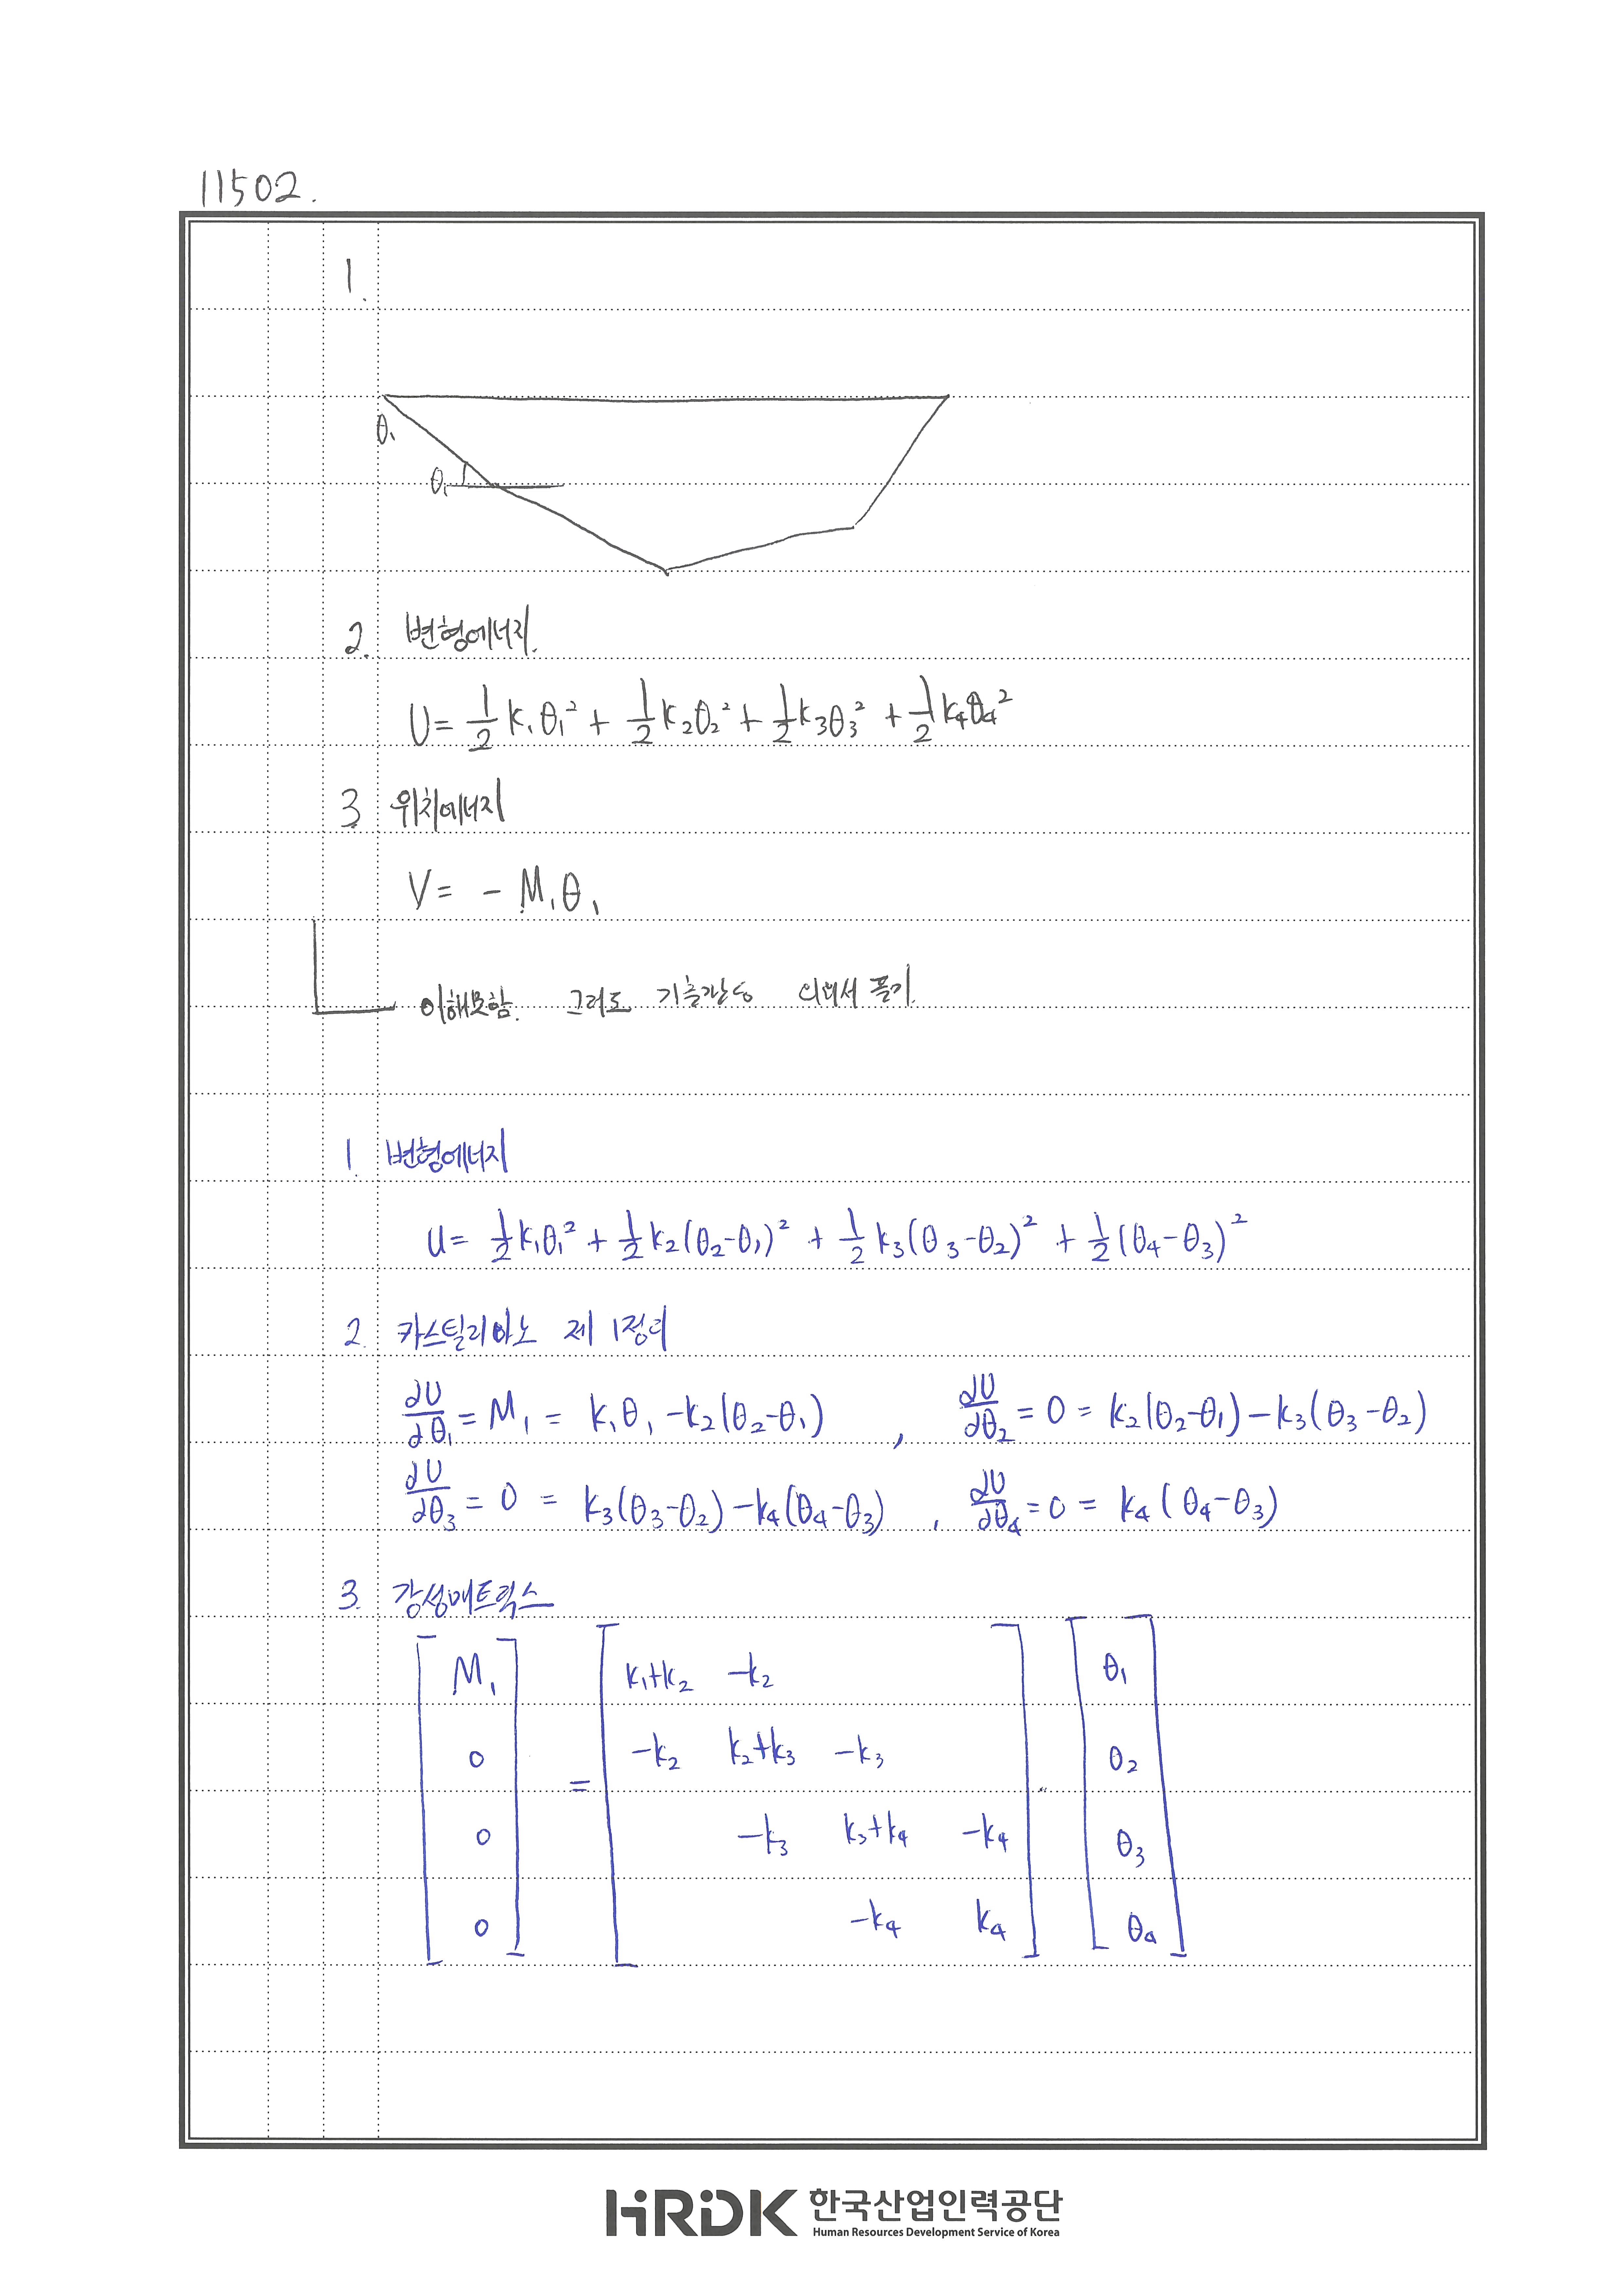 11502.
1.
θ₁
θ₁
2. 변형에너지.
U= 1/2 k₁θ₁² + 1/2 k₂θ₂² + 1/2 k₃θ₃² + 1/2 k₄θ₄²
3. 위치에너지
V= - M₁θ₁
이해못함. 그래도 기출 풀기.
1. 변형에너지
U= 1/2 k₁θ₁² + 1/2 k₂(θ₂-θ₁)² + 1/2 k₃(θ₃-θ₂)² + 1/2 (θ₄-θ₃)²
2. 카스틸리아노 제1정리
∂U/∂θ₁ = M₁ = k₁θ₁ -k₂(θ₂-θ₁) , ∂U/∂θ₂ = 0 = k₂(θ₂-θ₁)-k₃(θ₃-θ₂)
∂U/∂θ₃ = 0 = k₃(θ₃-θ₂)-k₄(θ₄-θ₃) , ∂U/∂θ₄ = 0 = k₄(θ₄-θ₃)
3. 강성매트릭스
[M₁] [k₁+k₂ -k₂] [θ₁]
[0] = [-k₂ k₂+k₃ -k₃] [θ₂]
[0] [-k₃ k₃+k₄ -k₄] [θ₃]
[0] [-k₄ k₄] [θ₄]
HRDK 한국산업인력공단
Human Resources Development Service of Korea